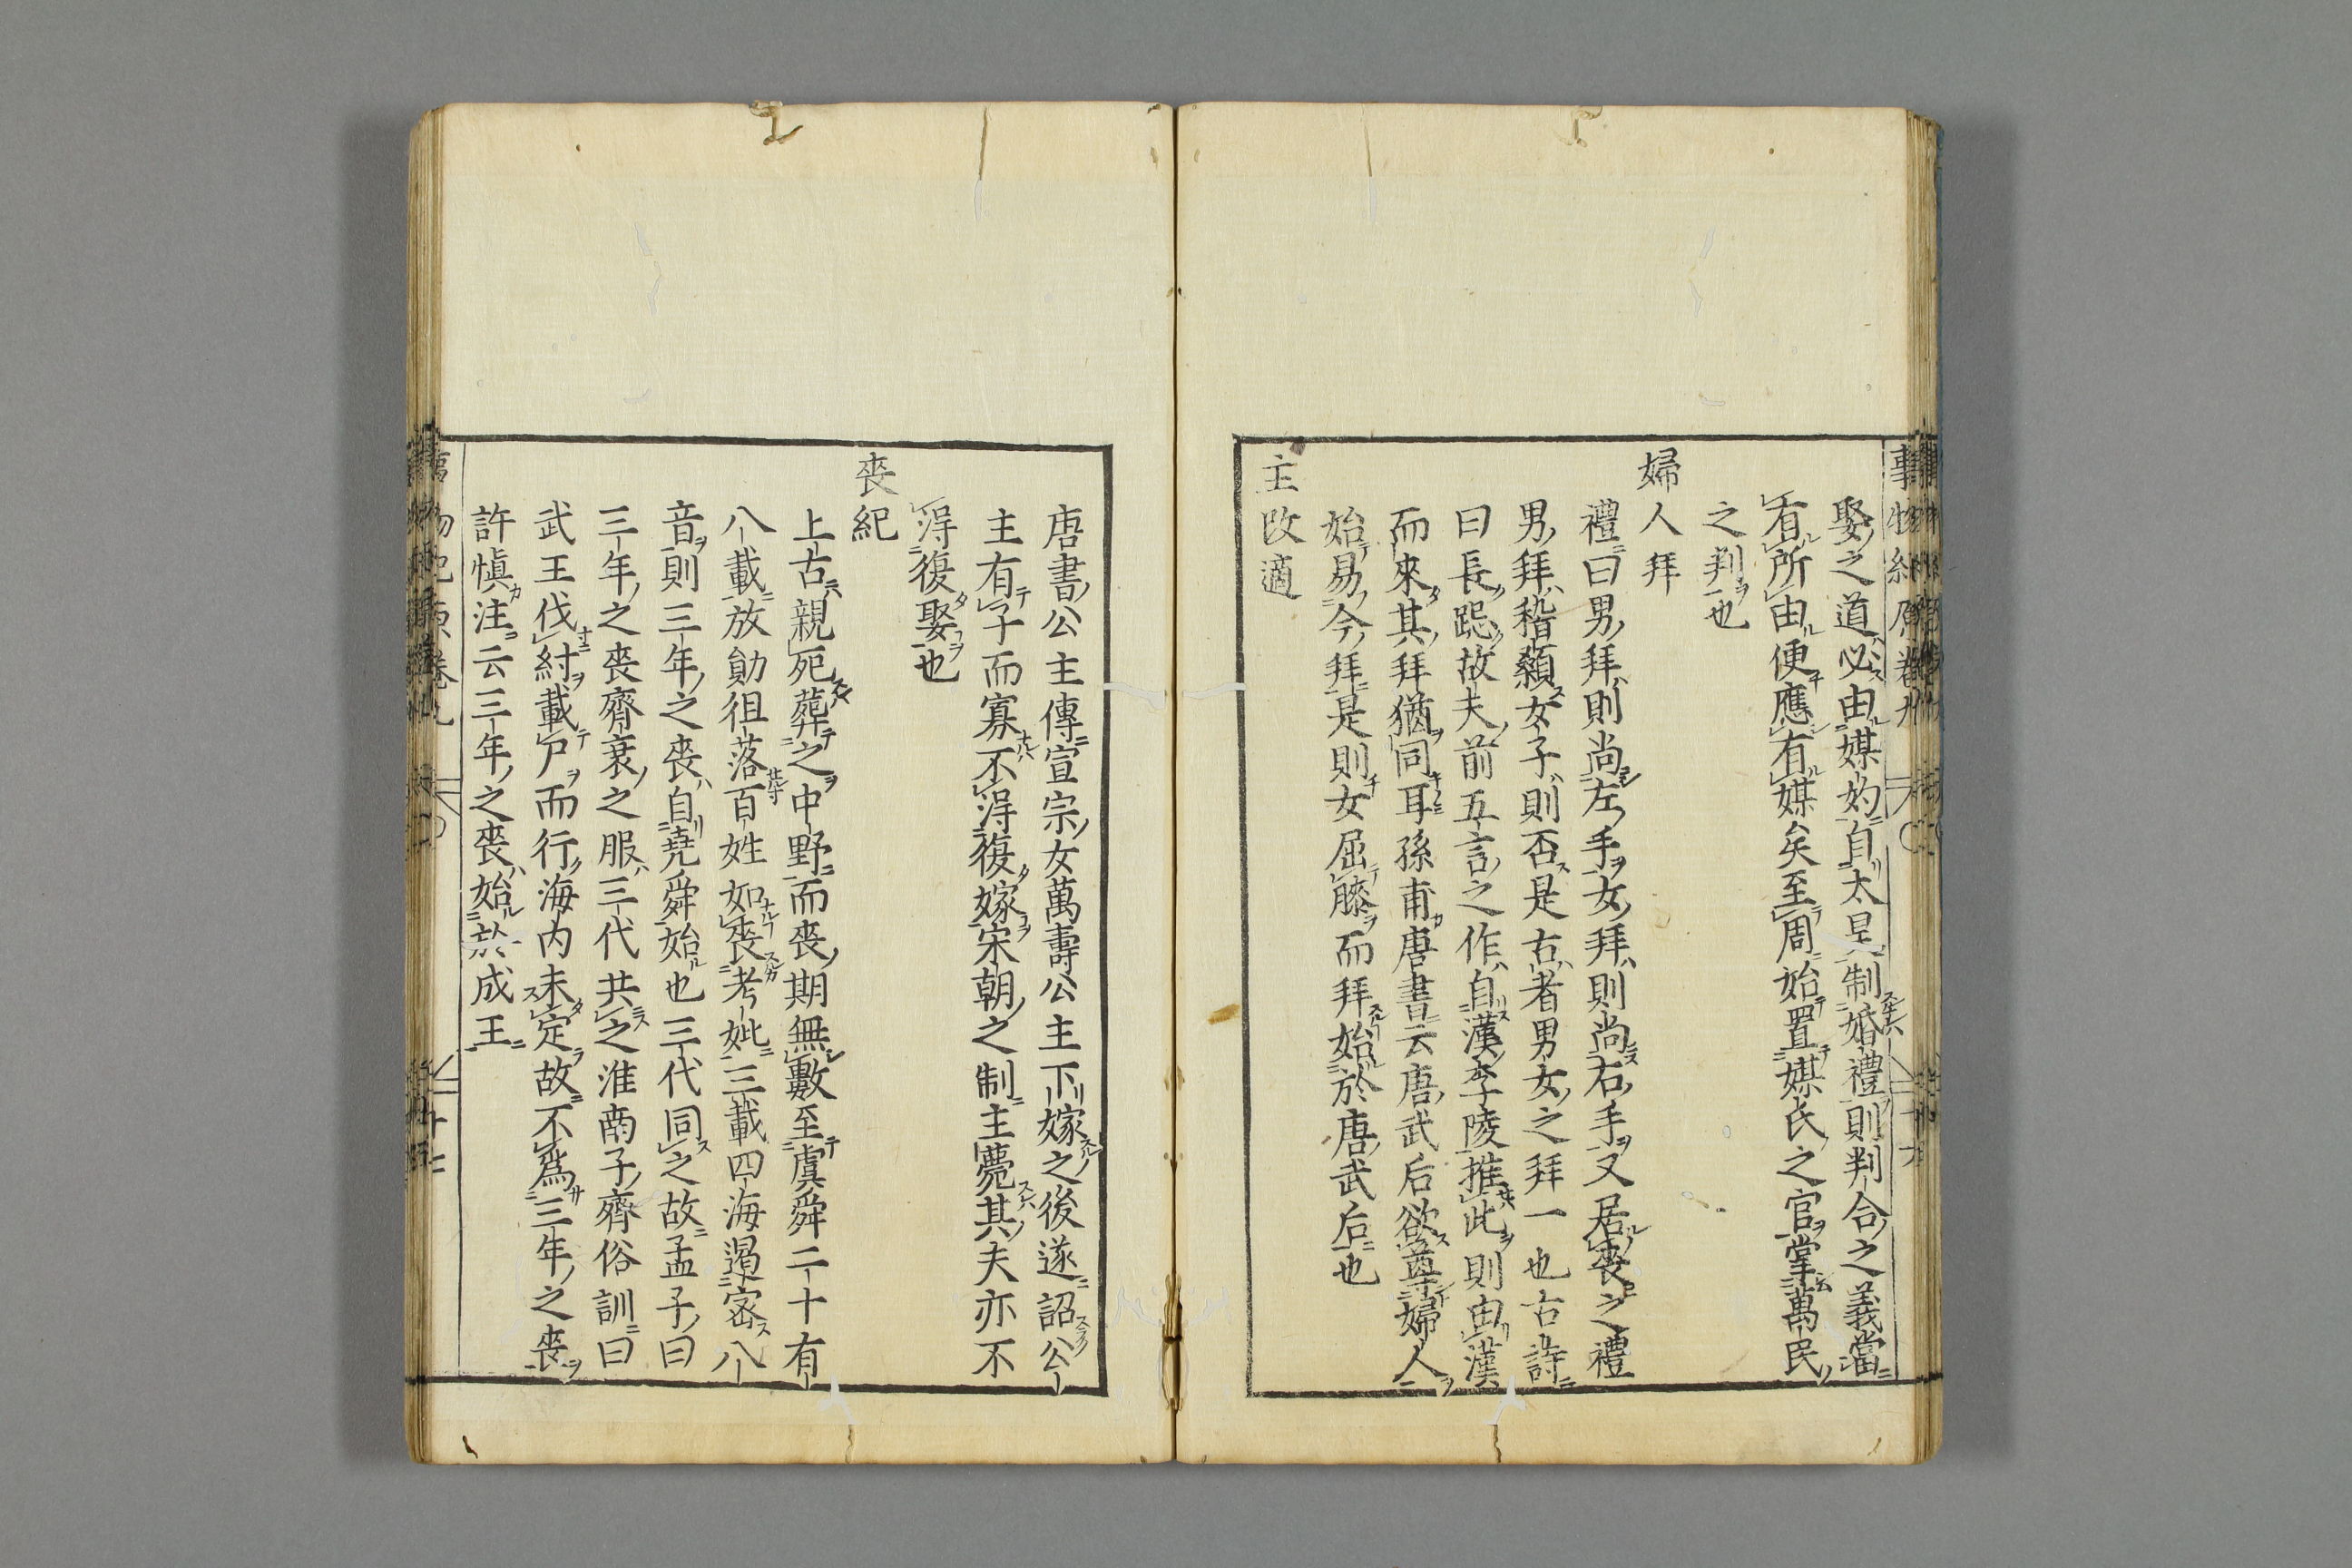 娶之道必由媒妁自太昊制婚禮則判合之義當
有所由便應有媒矣至周始置媒氏之官掌萬民
之判也
婦人拜
禮曰男拜則尚左手女拜則尚右手又居喪之禮
男拜稽顙女子則否是古者男女之拜一也古詩
曰長跽故夫前五言之作自漢李陵推此則由漢
而來其拜猶同耳孫甫唐書云唐武后欲尊婦人
始易今拜是則女屈膝而拜始於唐武后也
主改適
唐書公主傳宣宗女萬壽公主下嫁之後遂詔公
主有子而寡不得復嫁宋朝之制主薨其夫亦不
得復娶也
喪紀
上古親死葬之中野而喪期無數至虞舜二十有
八載放勛徂落百姓如喪考妣三載四海遏宻八
音則三年之喪自堯舜始也三代同之故孟子曰
三年之喪齊衰之服三代共之淮南子齊俗訓曰
武王伐紂載尸而行海内未定故不為三年之喪
許愼注云三年之喪始於成王